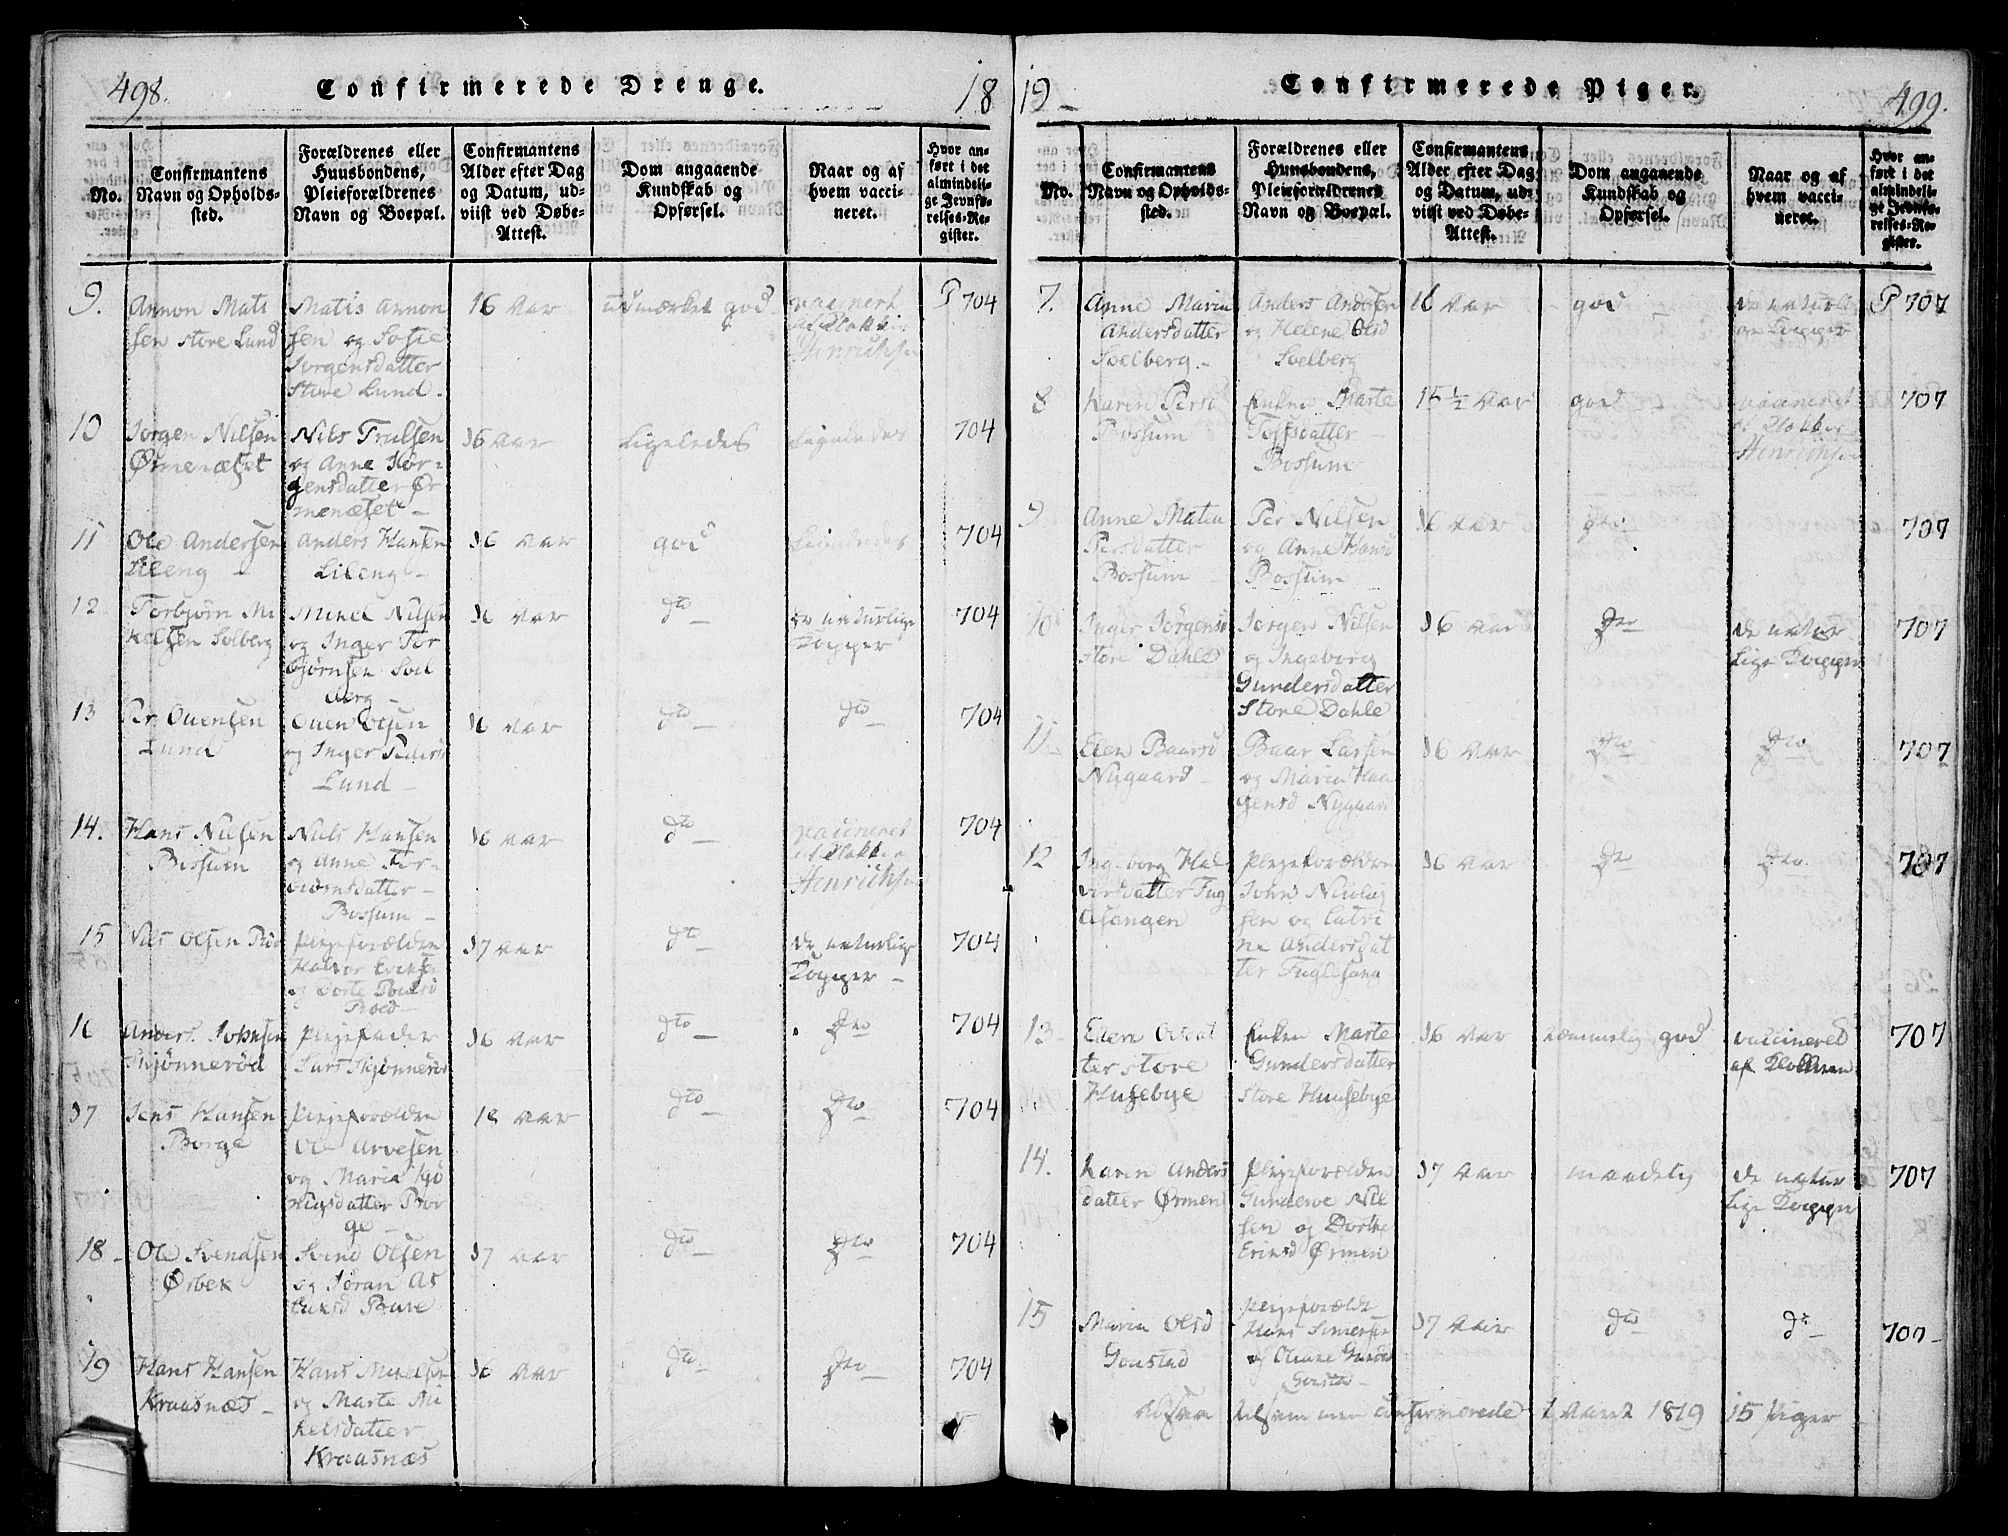 498.
Confirmerede Drenge.
18
No.
Confirmantens
Navn og Opholds-
sted.
Forældrenes eller
Huusbondens,
Pleieforældrenes
Navn og Boepæl.
Confirmantens
Alder efter Dag
og Datum, ud-
viist ved Døbe-
Attest.
Dom angaaende
Kundskab og
Opførsel.
Naar og af
hvem vacci-
neret.
Hvor an-
ført i det
almindeli-
ge Jevnfø-
relses-Re-
gister.
9.
Amon Mati
sen store Lund
Matis Amon
sen og Sofie
Jørgensdatter
Store Lund.
16 Aar
udmærket god
af Klokker
Henrichsen
P 704
10
Jørgen Nilsen
Ørmenæset
Nils Trulsen
og Anne Jør-
gensdatter Ør
menæset
16 Aar
Ligeledes
Ligeledes
704
11
Ole Andersen
Lileng
Anders Hansen
Lileng
16 Aar
god
Ligeledes
704
12
Torbjørn Mi
kelsen Solberg
Mikel Nilsen
og Inger Tor
bjørnsen Sol
berg
16 Aar
dto
de naturlige
Kopper
704
13
Per Ouensen
Lund
Ouen Olsen
og Inger Peders
Lund
16 Aar
dto
dto
704
14.
Hans Nilsen
Bossum
Niels Hansen
og Anne Tor-
datter
Bossum
16 Aar
dto
vaccineret
af Klokker
Henrichsen
704
15
Nils Olsen
Plejeforældre
Halvor Eriksen
og Dorte
17 Aar
dto
de naturlige
Kopper
704
16
Anders Johnsen
Skjønnerød
Plejefader
Lars Skjønnerød
16 Aar
dto
dto
704
17
Jens Hansen
Borge
Plejeforældre
Ole Arvesen
og Maria
datter Bor
ge
18 Aar
dto
dto
704
18
Ole Svendsen
Ørbek
Svend Olsen
og Jøran As
laksd Bure
17 Aar
dto
dto
704
19
Hans Hansen
Kraasnæs
Hans Mikelsen
og Marte Mi
kelsdatter
Kraasnæs
16 Aar
dto
dto
704
19
Confirmerede Piger.
499.
No.
Confirmantens
Navn og Opholds-
sted.
Forældrenes eller
Huusbondens,
Pleieforældrenes
Navn og Boepæl.
Confirmantens
Alder efter Dag
og Datum, ud-
viist ved Døbe-
Attest.
Dom angaaende
Kundskab og
Opførsel.
Naar og af
hvem vacci-
neret.
Hvor an-
ført i det
almindeli-
ge Jevnfø-
relses-Re-
gister.
7.
Anne Maria
Andersdatter
Soelberg
Anders Andersen
og Helene Olsd
Soelberg
16 Aar
god
de naturli
ge Kopper
P 707
8
Karen Persd
Bossum
Enken Marte
datter
Bossum
15 1/2 Aar
god
vaccineret
af Klokker
Henrichsen
707
9
Anne Matia
Persdatter
Bossum
Per Nilsen
og Anne Hansd
Bossum
16 Aar
dto
707
10
Inger Jørgensd
store Dahle
Jørgen Nilsen
og Ingeborg
Gundersdatter
Store Dahle
16 Aar
dto
de natur
lige Kopper
707
11
Elen Baarsd
Nygaard
Baar Larsen
og Maria Haa
gensd Nygaard
16 Aar
dto
dto
707
12
Ingeborg Hal
vorsdatter Fug
lesangen
Plejeforældre
John Nicolaj
sen og Catri
ne Andersdat
ter Fuglesang
16 Aar
dto
dto
707
13
Elen Olsdat
ter store
Husebye
Enken Marte
Gundersdatter
store Huusebye
16 Aar
temmelig god
vaccineret
af Klokkeren
707
14.
Karen Anders
datter Ørmen
Plejeforældre
Gunder Niel
sen og Dorthe
Eriksd Ørmen
17 Aar
maadelig
de natur
lige Kopper
707
15
Maria Olsd
Gonstad
Plejeforældre
Hans Simensen
17 Aar
dto
dto
707
Altsaa tilsammen confirmerede i Aaret 1819 15 Piger